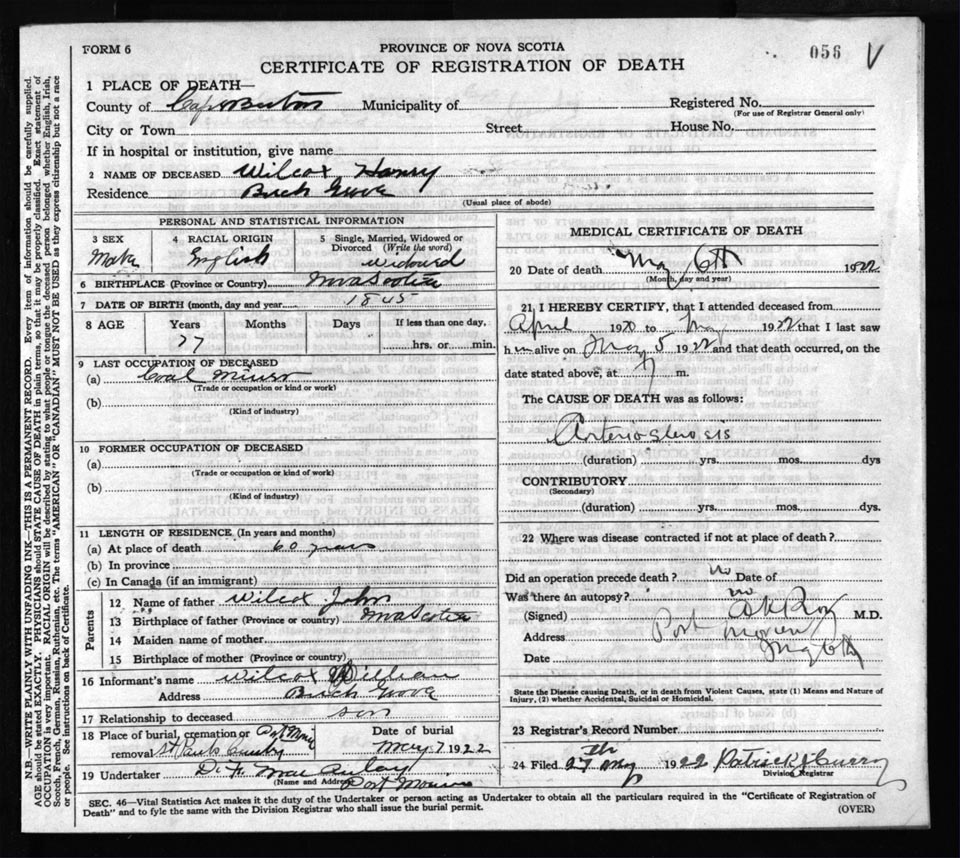 FORM 6
PROVINCE OF NOVA SCOTIA
056 V
CERTIFICATE OF REGISTRATION OF DEATH
1 PLACE OF DEATH—
County of Cape Breton Municipality of Registered No.
(For use of Registrar General only)
City or Town Street House No.
If in hospital or institution, give name
2 NAME OF DECEASED Wilcox Henry
Residence Birch Grove
(Usual place of abode)
PERSONAL AND STATISTICAL INFORMATION
3 SEX 4 RACIAL ORIGIN 5 Single, Married, Widowed or
Divorced (Write the word)
Male English Widowed
6 BIRTHPLACE (Province or Country) Nova Scotia
7 DATE OF BIRTH (month, day and year) 1845
8 AGE Years Months Days If less than one day,
77 hrs. or min.
9 LAST OCCUPATION OF DECEASED
(a) Coal Miner
(Trade or occupation or kind or work)
(b)
(Kind of industry)
10 FORMER OCCUPATION OF DECEASED
(a)
(Trade or occupation or kind of work)
(b)
(Kind of industry)
11 LENGTH OF RESIDENCE (In years and months)
(a) At place of death 60 years
(b) In province
(c) In Canada (if an immigrant)
Parents
12 Name of father Wilcox John
13 Birthplace of father (Province or country) Nova Scotia
14 Maiden name of mother
15 Birthplace of mother (Province or country)
16 Informant's name Wilcox William
Address Birch Grove
17 Relationship to deceased son
18 Place of burial, cremation or Port Morien Date of burial
removal St Pauls May 7 1922
19 Undertaker D. F. MacAulay
(Name and Address) Port Morien
MEDICAL CERTIFICATE OF DEATH
20 Date of death May 6th 1922
(Month, day and year)
21 I HEREBY CERTIFY, that I attended deceased from
April 1920 to May 1922 that I last saw
him alive on May 5 1922 and that death occurred, on the
date stated above, at m.
The CAUSE OF DEATH was as follows:
Arteriosclerosis
(duration) yrs. mos. dys
CONTRIBUTORY
(Secondary)
(duration) yrs. mos. dys.
22 Where was disease contracted if not at place of death?
Did an operation precede death? No Date of
Was there an autopsy? no
(Signed) Roy M.D.
Address Port Morien
Date May 6th
State the Disease causing Death, or in death from Violent Causes, state (1) Means and Nature of
Injury, (2) whether Accidental, Suicidal or Homicidal.
23 Registrar's Record Number
24 Filed 27th May 1922 Patrick Curry
Division Registrar
SEC. 46—Vital Statistics Act makes it the duty of the Undertaker or person acting as Undertaker to obtain all the particulars required in the "Certificate of Registration of
Death" and to fyle the same with the Division Registrar who shall issue the burial permit.
(OVER)
N.B.—WRITE PLAINLY WITH UNFADING INK—THIS IS A PERMANENT RECORD. Every item of information should be carefully supplied.
AGE should be stated EXACTLY. PHYSICIANS should STATE CAUSE OF DEATH in plain terms, so that it may be properly classified. Exact statement of
OCCUPATION is very important. RACIAL ORIGIN will be described by stating to what people or tongue the deceased person belonged whether English, Irish,
Scotch, French, German, Russian, Ruthenian, etc. The terms "AMERICAN" OR "CANADIAN" MUST NOT BE USED as they express citizenship but not a race
or people. See instructions on back of Certificate.